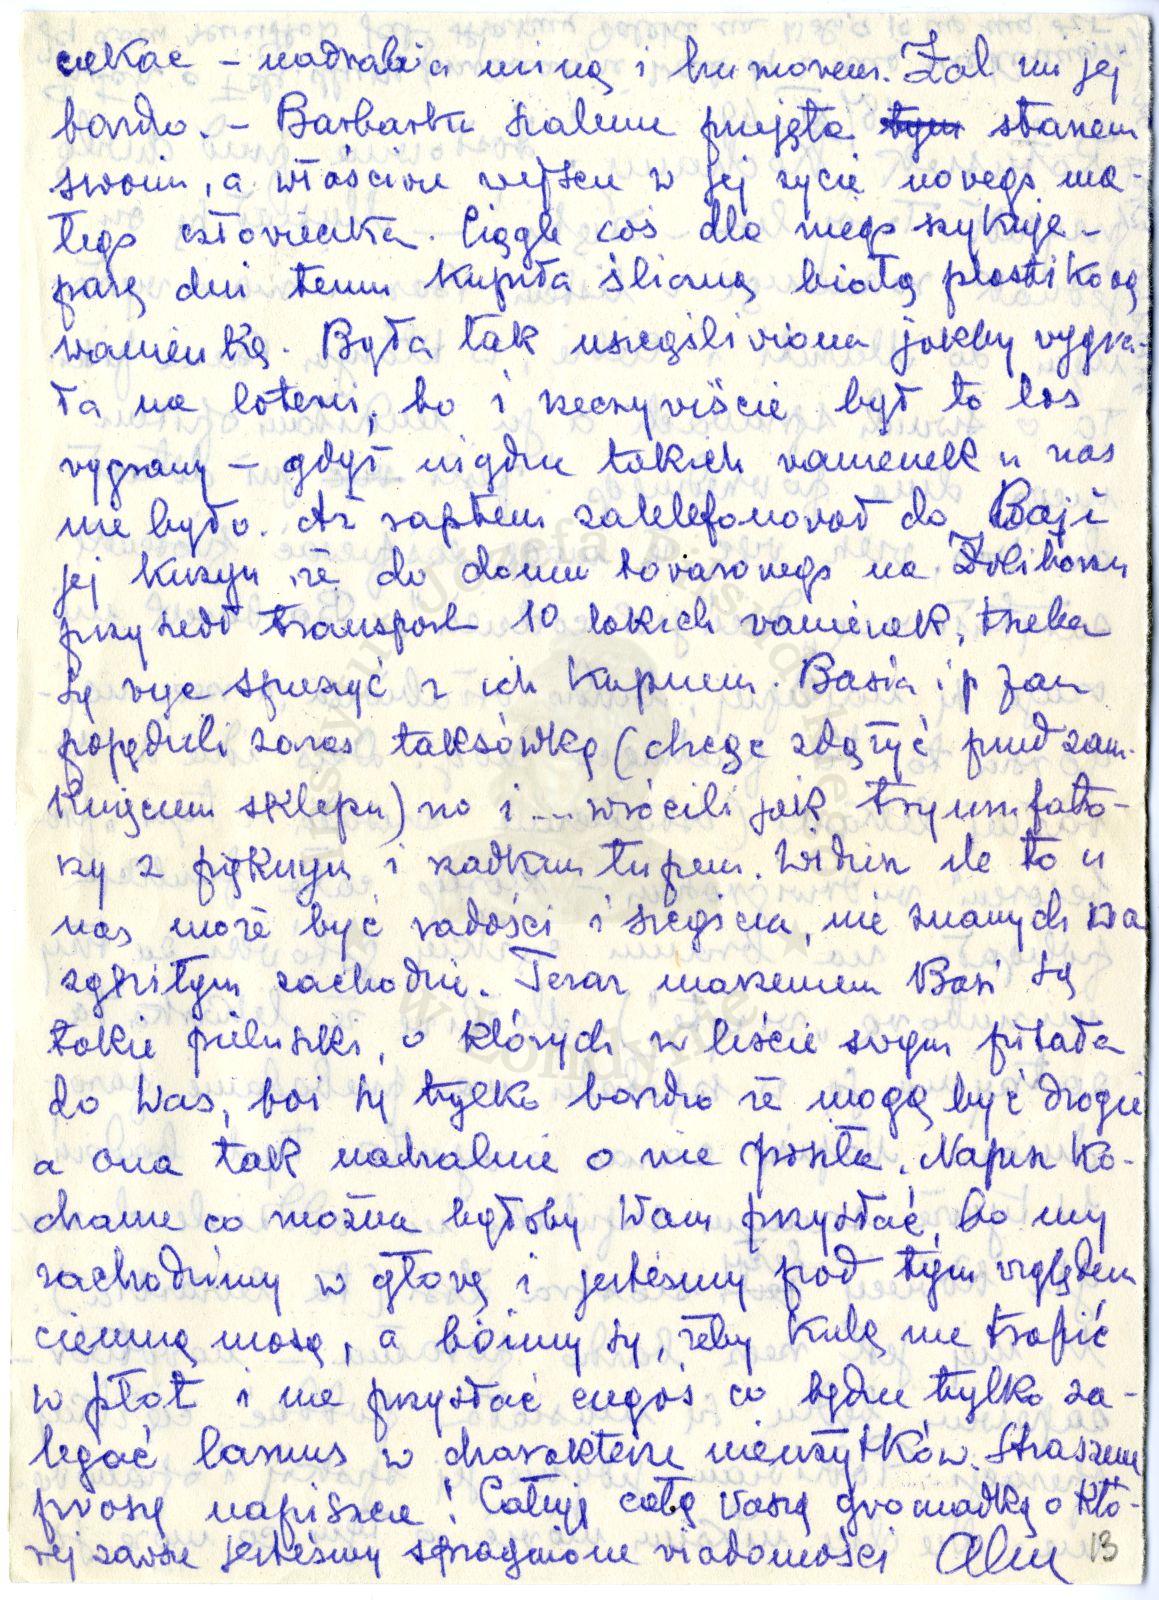 czekać – nadrabia miną i humorem. Żal mi jej
bardzo. – Barbarka szalenie przejęta tym stanem
swoim, a właściwie wejściem w jej życie nowego ma-
łego człowieczka. Ciągle coś dla niego szykuje –
parę dni temu kupiła śliczną białą plastikową
wanienkę. Była tak uszczęśliwiona jakby wygra-
ła na loterii, bo i rzeczywiście był to los
wygrany – gdyż nigdzie takich wanienek u nas
nie było. Aż raptem zatelefonował do Basi
jej kuzyn, że do domu towarowego na Żoliborzu
przyszedł transport 10 takich wanienek, trzeba
się więc spieszyć z ich kupnem. Basia i p Jan
popędzili zaraz taksówką (chcąc zdążyć przed zam-
knięciem sklepu) no i .... wrócili jak tryumfato-
rzy z pięknym i rzadkim łupem. Widzisz ile to u
nas może być radości i szczęścia, nie znanych na
zgniłym zachodzie. Teraz marzeniem Basi są
takie pieluszki, o których w liście swym pisała
do Was, boi się tylko bardzo że mogą być drogie
a ona tak nachalnie o nie prosiła. Napisz ko-
chanie co można byłoby Wam przysłać, bo my
zachodzimy w głowę i jesteśmy pod tym względem
ciemną masą, a boimy się, żeby kulą nie trafić
w płot i nie przysłać czegoś co będzie tylko za-
legać lamus w charakterze nieużytków. Straszenie
proszę napiszcie! Całuję całą Waszą gromadkę o któ-
rej zawsze jesteśmy spragnione wiadomości
13
Instytut Józefa Piłsudskiego
w Londynie